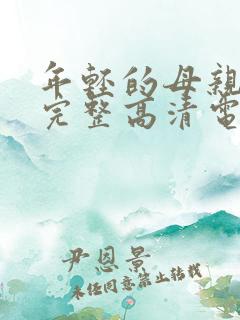 年輕的母親
完整高清電
尹恩景
未經同意禁止轉載